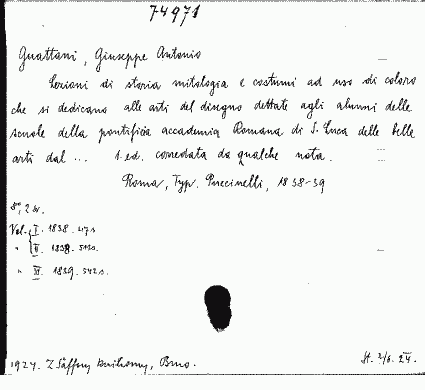 74971
Guattani, Giuseppe Antonio
Lezioni di storia mitologia e costumi ad uso di coloro
che si dedicano alle arti del disegno dettate agli alunni delle
scuole della pontificia accademia Romana di S. Luca delle belle
arti dal ... 1. ed. corredata da qualche nota.
Roma, Typ. Puccinelli, 1838-39
8°, 2 sv.
Vol. I. 1838. 471 s
" II. 1838.
" III. 1839. 542 s.
1924. Z Brno.
St. 2/6. 24.